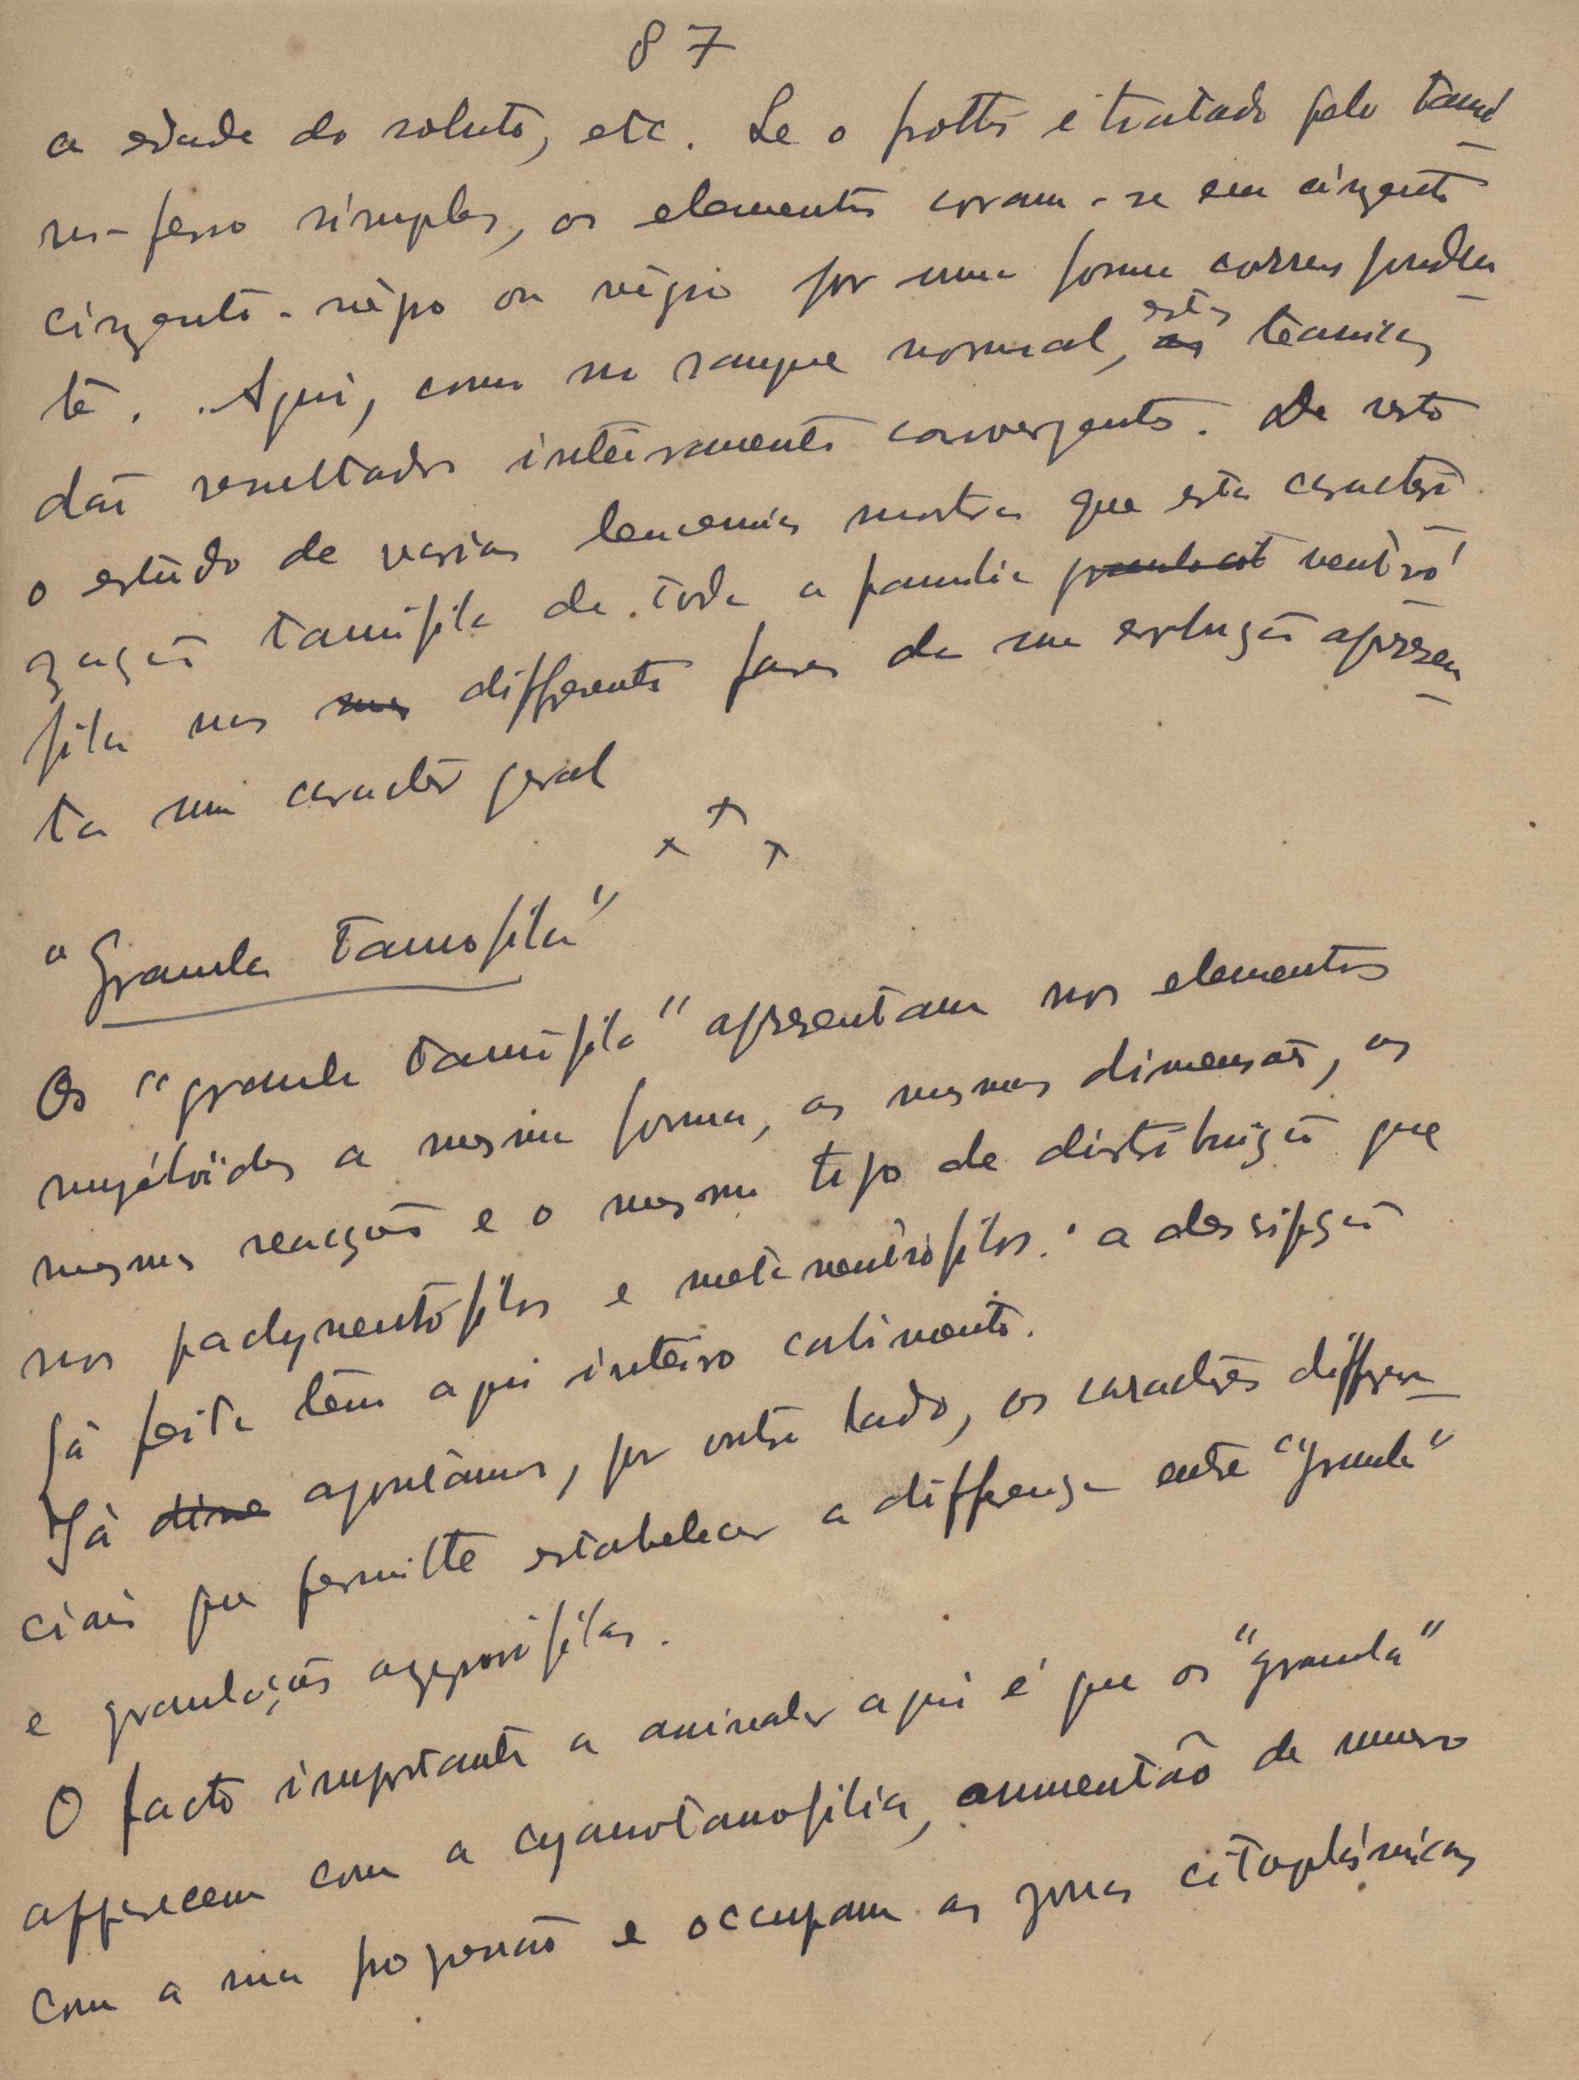 87
a edade do soluto, etc. Se o frottis é tratado pelo tanno
res-ferro simples, os elementos coram-se em cinzento
cinzento-negro ou negro por uma forma corresponden
te. Aqui, como no sangue normal, estas technicas
dão resultados inteiramente convergentes. De resto
o estudo de varias leucemias mostra que esta caracteri
zação tannófila de toda a familia neutró
fila nas differentes fases da sua evolução apresen
ta um caracter geral
"Granula tannofila"
Os "granula tannófila" apresentam nos elementos
myéloïdes a mesma forma, as mesmas dimensões, as
mesmas reacções e o mesmo tipo de distribuição que
nos pachyneutrófilos e metaneutrófilos: a descripção
já feita têm aqui inteiro cabimento.
Já apontámos, por outro lado, os caractères differen
ciais que permitte estabelecer a differença entre "granula"
e granulações azurófilas.
O facto importante a assinalar aqui é que os "granula"
apparecem com a cyanotanofilia, aumentão de numero
com a sua progressão e occupam as zonas citoplásmicas